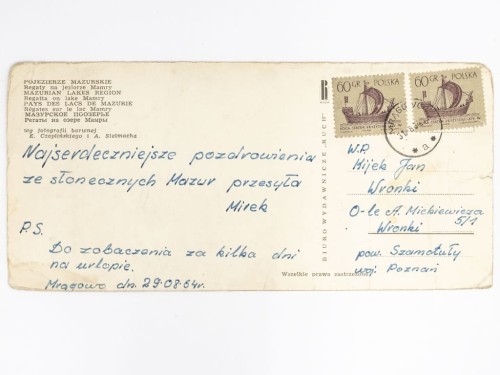 POJEZIERZE MAZURSKIE
Regaty na jeziorze Mamry
MAZURIAN LAKES REGION
Regatta on lake Mamry
PAYS DES LACS DE MAZURIE
Régates sur le lac Mamry
МАЗУРСКОЕ ПООЗЕРЬЕ
Регаты на озере Мамры
wg fotografii barwnej
E. Czeplińskiego i A. Stelmacha
Najserdeczniejsze pozdrowienia
ze słonecznych Mazur przesyła
Mirek
P.S.
Do zobaczenia za kilka dni
na urlopie.
Mrągowo dn. 29.08.64r.
BIURO WYDAWNICZE „RUCH"
Wszelkie prawa zastrzeżone
60 GR POLSKA
60 GR POLSKA
MRĄGOWO
a
W.P.
Hijek Jan
Wronki
O-le A. Mickiewicza
5/1
Wronki
pow. Szamotuły
woj. Poznań